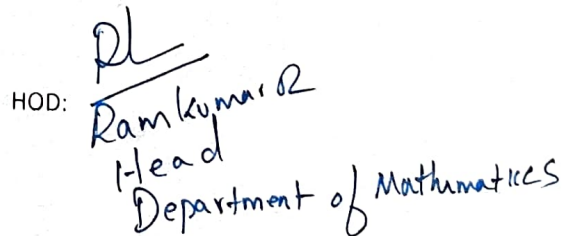 HOD:
Ramkumar R
Head
Department of Mathematics